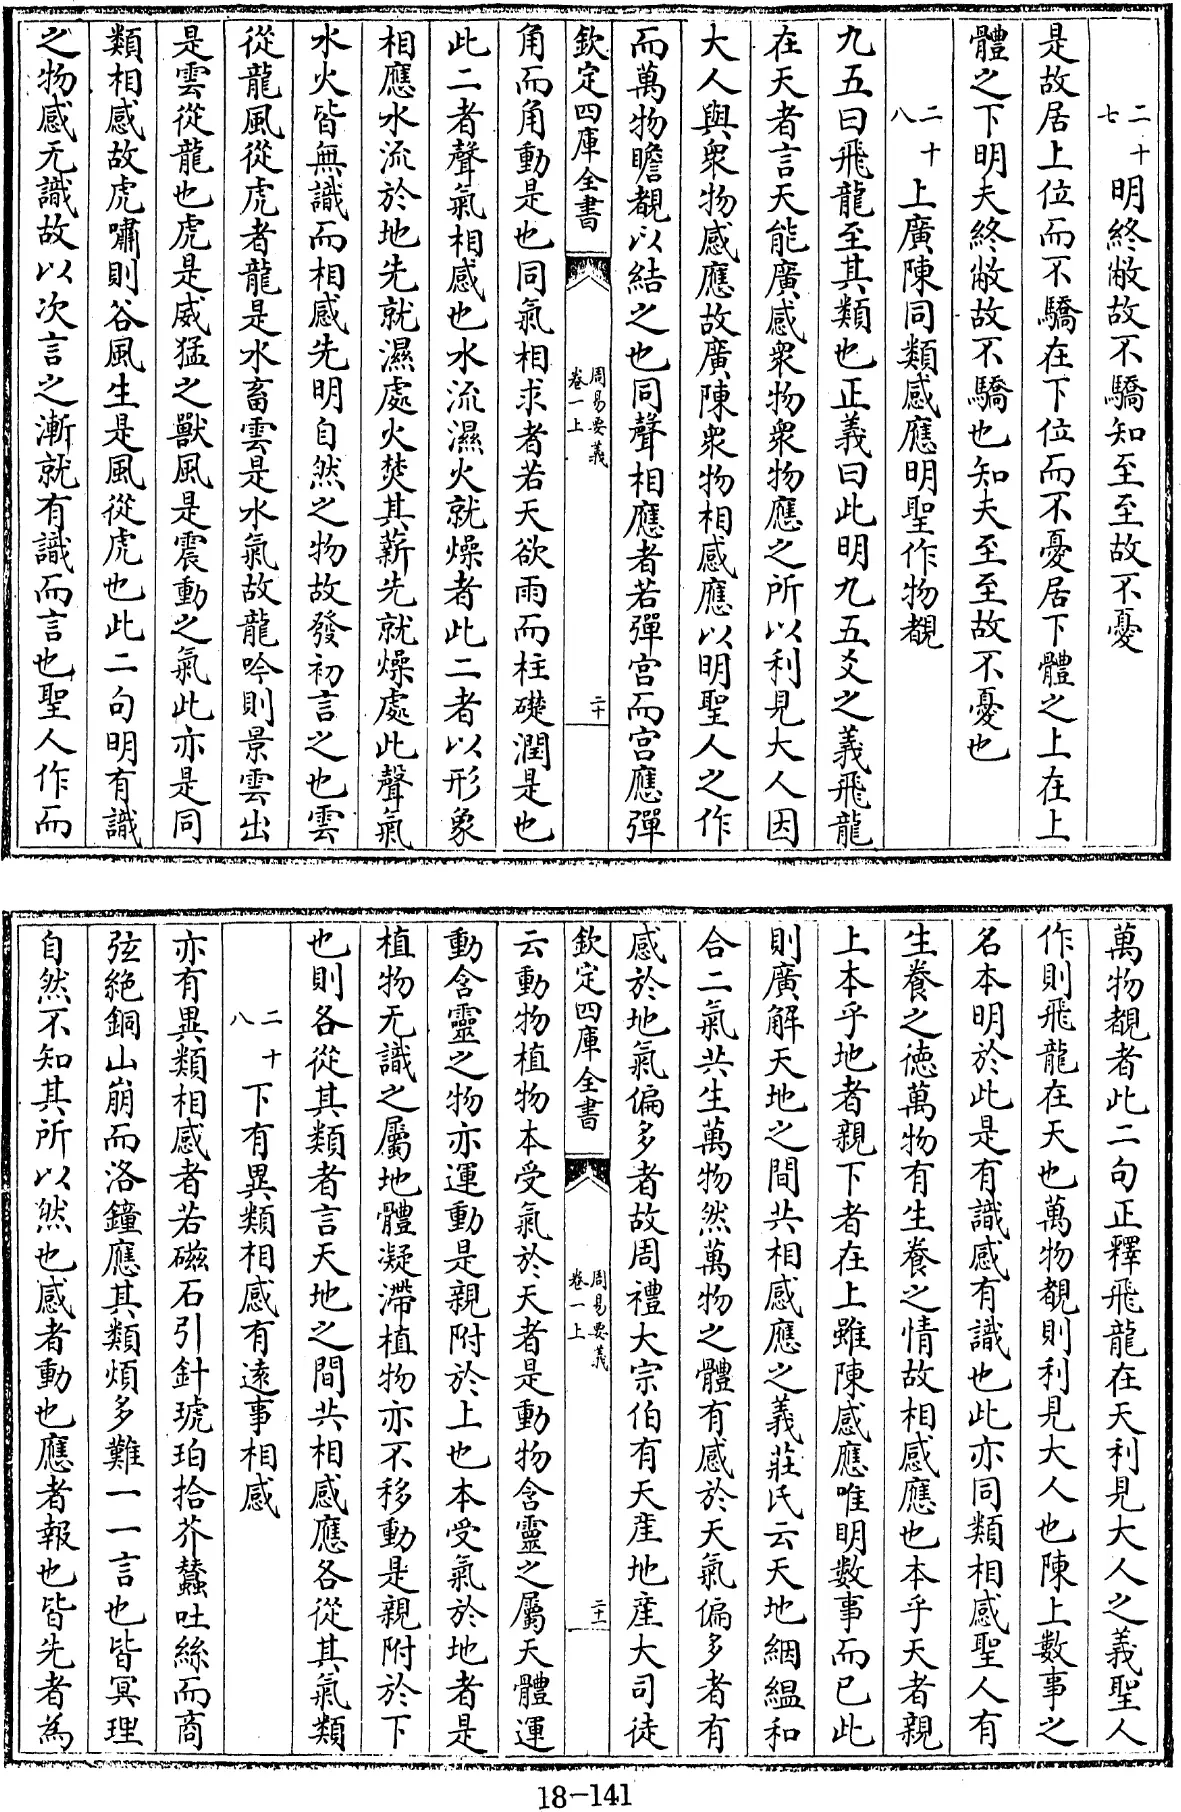 二十七　明終敝故不驕知至至故不憂
是故居上位而不驕在下位而不憂居下體之上在上
體之下明夫終敝故不驕也知夫至至故不憂也
二十八　上廣陳同類感應明聖作物覩
九五曰飛龍至其類也正義曰此明九五爻之義飛龍
在天者言天能廣感衆物衆物應之所以利見大人因
大人與衆物感應故廣陳衆物相感應以明聖人之作
而萬物瞻覩以結之也同聲相應者若彈宫而宫應彈
欽定四庫全書　周易要義　卷一上　二十
角而角動是也同氣相求者若天欲雨而柱礎潤是也
此二者聲氣相感也水流濕火就燥者此二者以形象
相應水流於地先就濕處火焚其薪先就燥處此聲氣
水火皆無識而相感先明自然之物故發初言之也雲
從龍風從虎者龍是水畜雲是水氣故龍吟則景雲出
是雲從龍也虎是威猛之獸風是震動之氣此亦是同
類相感故虎嘯則谷風生是風從虎也此二句明有識
之物感无識故以次言之漸就有識而言也聖人作而
萬物覩者此二句正釋飛龍在天利見大人之義聖人
作則飛龍在天也萬物覩則利見大人也陳上數事之
名本明於此是有識感有識也此亦同類相感聖人有
生養之徳萬物有生養之情故相感應也本乎天者親
上本乎地者親下者在上雖陳感應唯明數事而已此
則廣解天地之間共相感應之義莊氏云天地絪縕和
合二氣共生萬物然萬物之體有感於天氣偏多者有
感於地氣偏多者故周禮大宗伯有天産地産大司徒
欽定四庫全書　周易要義　卷一上　二十一
云動物植物本受氣於天者是動物含靈之屬天體運
動含靈之物亦運動是親附於上也本受氣於地者是
植物无識之屬地體凝滯植物亦不移動是親附於下
也則各從其類者言天地之間共相感應各從其氣類
二十八　下有異類相感有逺事相感
亦有異類相感者若磁石引針琥珀拾芥蠶吐絲而商
弦絶銅山崩而洛鐘應其類煩多難一一言也皆冥理
自然不知其所以然也感者動也應者報也皆先者為
18-141